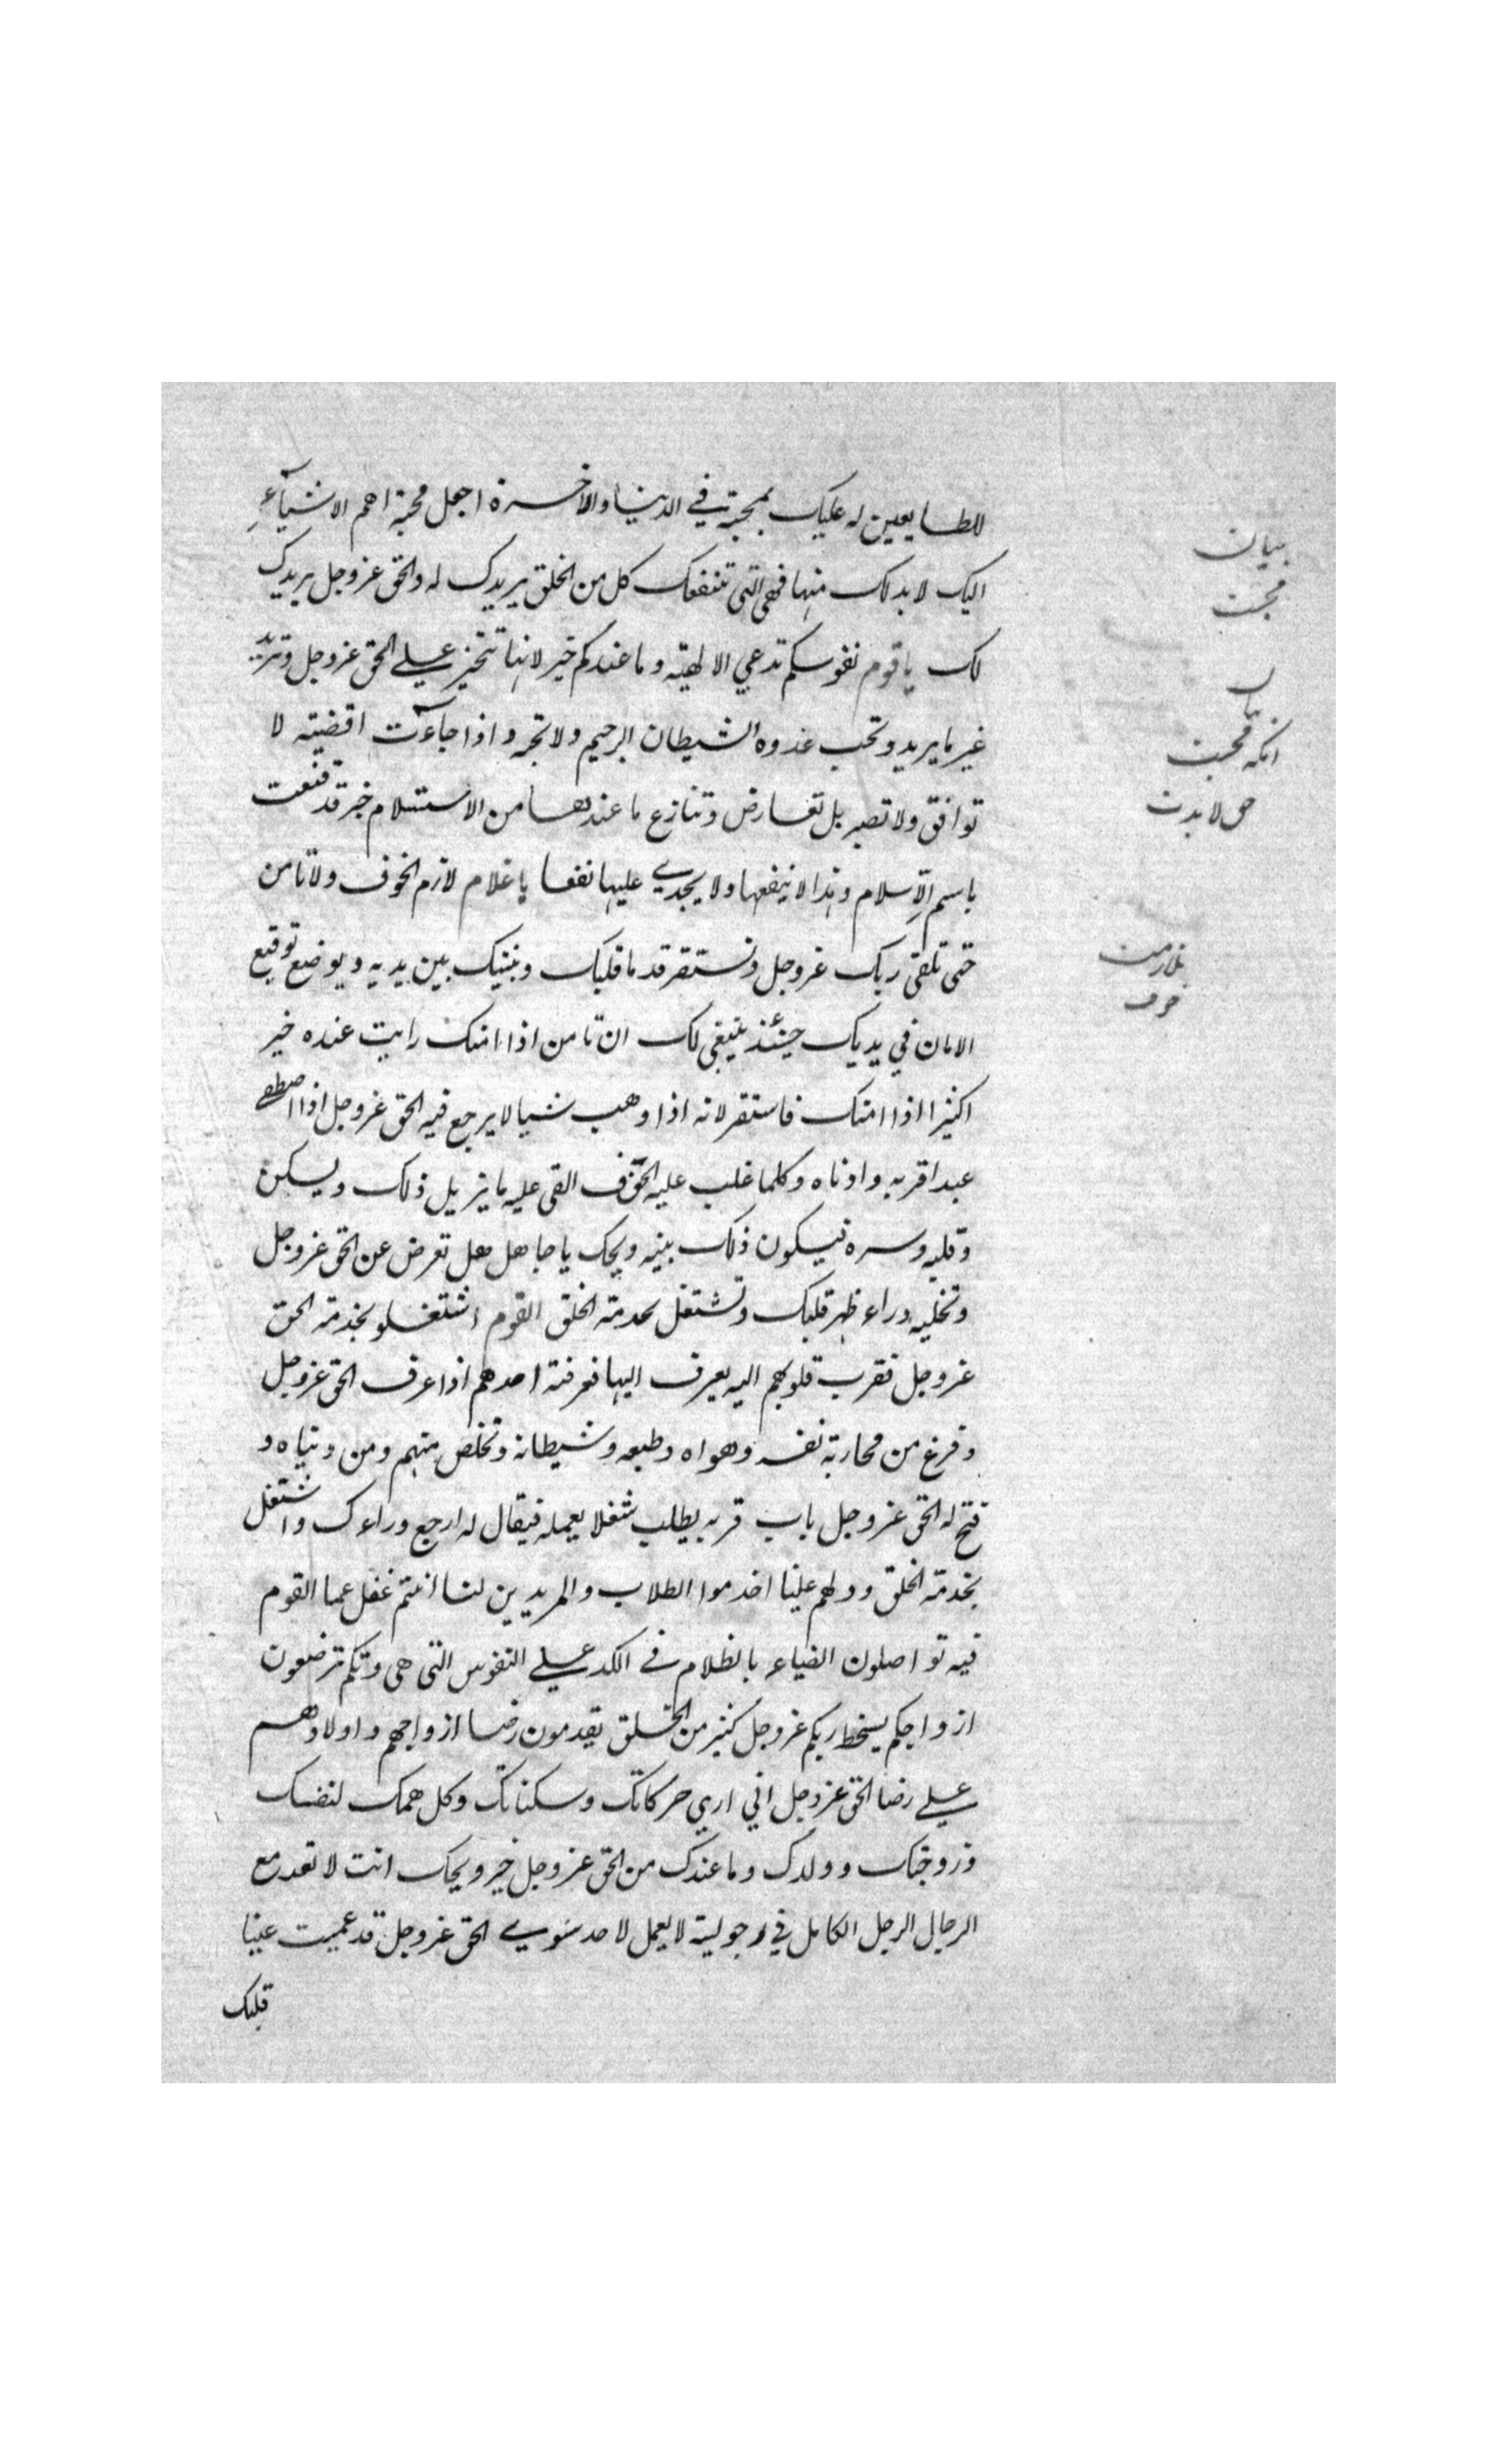 للطايعين له عليك بمحبته في الدنيا والاخرة اجعل محبته اهم الاشياء
اليك لا بد لك منها فهي التي تنفعك كل من الخلق يريدك له والحق عز وجل يريدك
لك يا قوم نفوسكم تدعي الالهية وما عندكم خير لانها تتخير علي الحق عز وجل وتريد
غير ما يريد وتحب عدوه الشيطان الرجيم ولا تحبه واذا جاءت اقضيته لا
توافق ولا تصبر بل تعارض وتنازع ما عندها من الاستسلام خبر قد قنعت
باسم الاسلام وهذا لا ينفعها ولا يجدي عليها نفعا يا غلام لازم الخوف ولا تامن
حتى تلقى ربك عز وجل وتستقر قدما قلبك وبنيتك بين يديه ويوضع توقيع
الامان في يديك حينئذ ينبغي لك ان تامن اذا امنك رايت عنده خير
اكثيرا اذا امنك فاستقر لانه اذا وهب شيا لا يرجع فيه الحق عز وجل اذا اصطفى
عبدا قربه وادناه وكلما غلب عليه الخوف القى عليه ما يزيل ذلك ويسكن
وقلبه وسره فيكون ذلك بينه ويحك يا جاهل هل تعرض عن الحق عز وجل
وتخليه وراء ظهر قلبك وتشتغل بخدمة الخلق القوم اشتغلو بخدمة الحق
عز وجل فقرب قلوبهم اليه يعرف اليها فعرفته احدهم اذا عرف الحق عز وجل
وفرغ من محاربة نفسه وهواه وطبعه وشيطانه وتخلص منهم ومن دنياه و
فتح له الحق عز وجل باب قربه يطلب شغلا يعمله فيقال له ارجع وراءك واشتغل
بخدمة الخلق ودلهم علينا اخدموا الطلاب والمريدين لنا انتم غفل عما القوم
فيه تواصلون الضياء بالظلام في الكد علي النفوس التي هي وتكم ترضعون
ازواجكم بسخط ربكم عز وجل كثير من الخلق يقدمون رضا ازواجهم واولادهم
علي رضا الحق عز وجل اني اري حركاتك وسكناتك وكل همك لنفسك
وزوجتك وولدك وما عندك من الحق عز وجل خير ويحك انت لا تعد مع
الرجال الرجل الكامل في رجوليته لا يعمل لاحد سوي الحق عز وجل قد عميت عينا
قلبك
بيان
محبت
بيان
انكه محبت
حق لا بدست
ملازمت
خوف